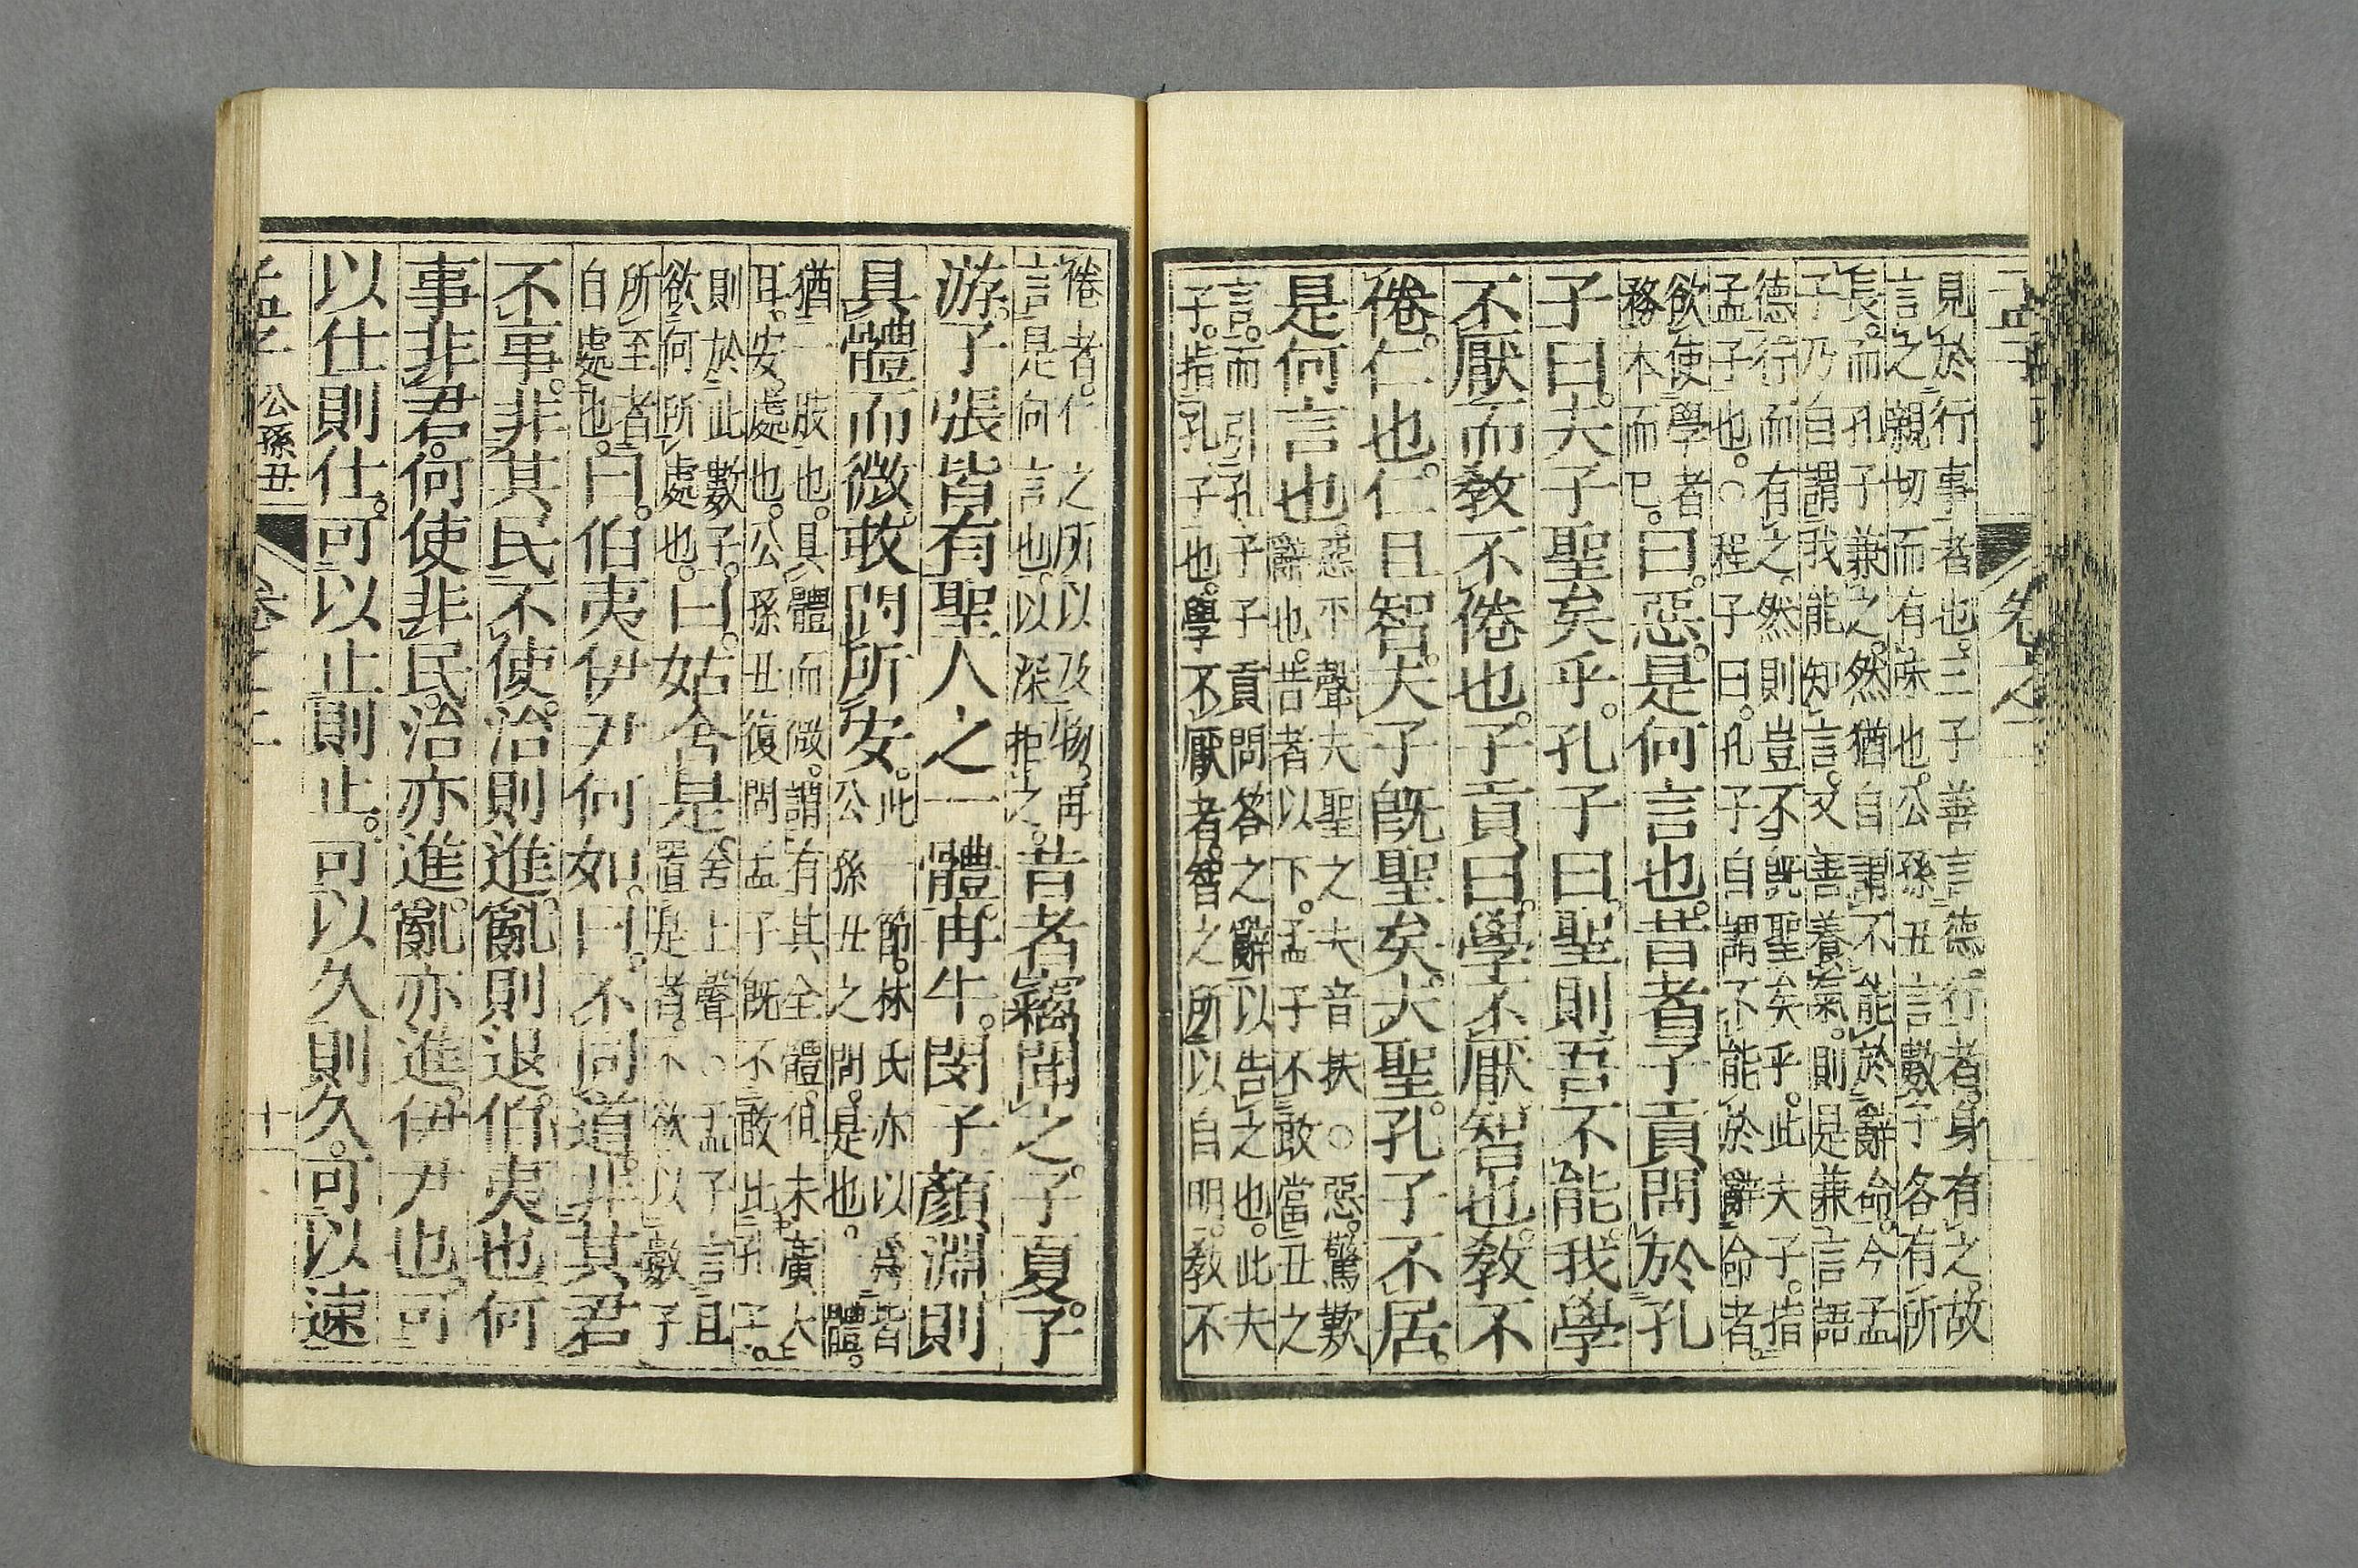 孟子 卷之二
見於行事者也。三子善言德行者。身有之。故
言之親切而有味也。公孫丑言數子各有所
長。而孔子兼之。然猶自謂不能於辭命。今孟
子乃自謂我能知言。又善養氣。則是兼言語
德行而有之。然則豈不既聖矣乎。此夫子。指
孟子也。○程子曰。孔子自謂不能於辭命者。
欲使學者
務本而已。
曰。惡。是何言也。昔者子貢問於孔
子曰。夫子聖矣乎。孔子曰。聖則吾不能。我學
不厭而教不倦也。子貢曰。學不厭智也。教不
倦。仁也。仁且智。夫子既聖矣。夫聖。孔子不居。
是何言也。
惡平聲夫聖之夫音扶○惡。驚歎
辭也。昔者以下。孟子不敢當丑之
言。而引孔子子貢問答之辭以告之也。此夫
子。指孔子也。學不厭者。智之所以自明。教不
倦者。仁之所以及物。再
言是何言也。以深拒之。
昔者竊聞之。子夏。子
游。子張皆有聖人之一體。冉牛。閔子顏淵則
具體而微。敢問所安。
此一節。林氏亦以爲皆
公孫丑之問。是也。一體。
猶一肢也。具體而微。謂有其全體。但未廣大
耳。安。處也。公孫丑復問孟子既不敢比孔子。
則於此數子。
欲何所處也。
曰。姑舍是。
舍上聲○孟子言且
置是者。不欲以數子
所至者
自處也。
曰。伯夷伊尹何如。曰。不同道。非其君
不事。非其民不使。治則進。亂則退。伯夷也。何
事非君。何使非民。治亦進。亂亦進。伊尹也。可
以仕則仕。可以止則止。可以久則久。可以速
孟子 公孫丑 卷之二 十一